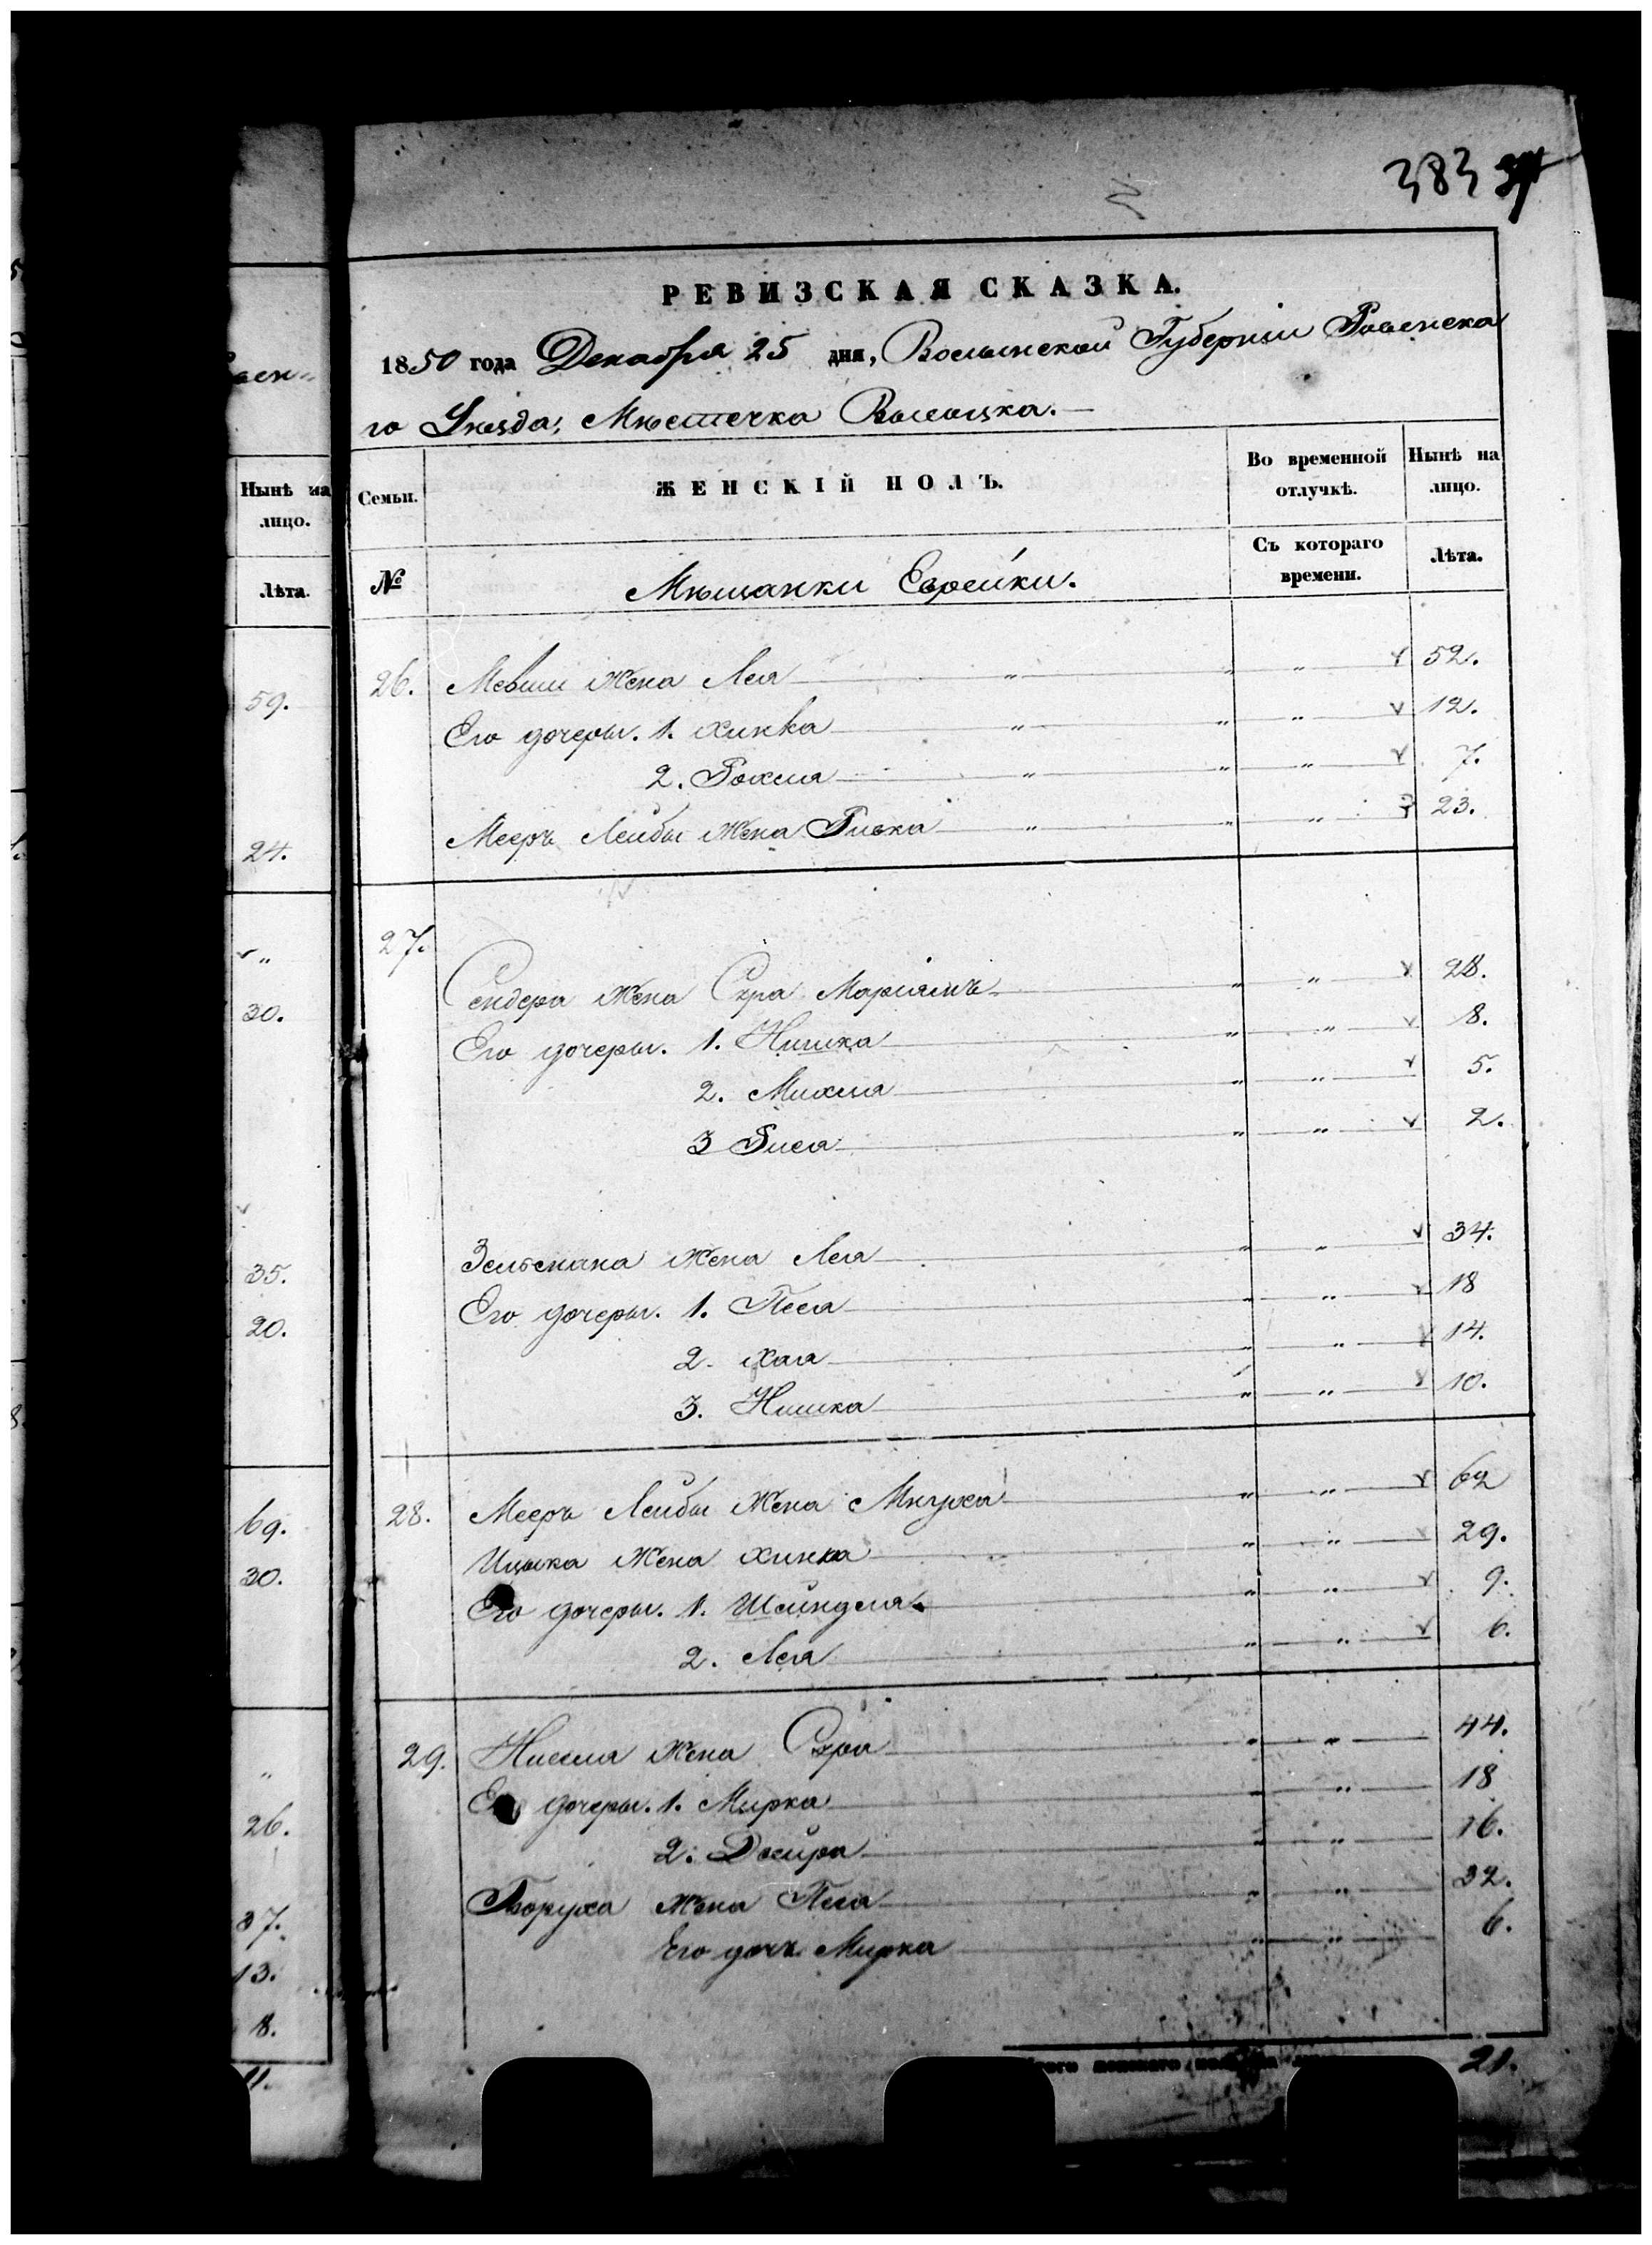 383
РЕВИЗСКАЯ СКАЗКА.
1850 года Декабря 25 дня, Волынской Губернiи Ровенска
го Уѣзда, Мѣстечка Высоцка.
Семьи.
ЖЕНСКIЙ ПОЛЪ.
Во временной отлучкѣ.
Нынѣ на лицо.
№
Мѣщанки Еврейки.
Съ котораго времени.
Лѣта.
26. Мовши жена Лея " " " 52.
Его дочеры. 1. Хинка " " " 12.
2. Рохля " " " 7.
Мееръ Лейбы жена Ривка " " " 23.
27.
Сендера жена Сура Марiямъ " " 28.
Его дочеры. 1. Нишка " " 8.
2. Михля " " 5.
3 Риса " " 2.
Зельмана жена Лея " " 34.
Его дочеры. 1. Песя " " 18
2. Хая " " 14.
3. Нишка " " 10.
28. Мееръ Лейбы жена Мнуха " " 62
Ицька жена Хинка " " 29.
Его дочеры. 1. Шейндля " " 9.
2. Лея " " 6.
29. Нисля жена Сура " " 44.
Его дочеры. 1. Мирка " " 18
2. Двейра " " 16.
Боруха жена Песя " " 32.
Его дочь Мирка " " 6.
женскаго 21.
Нынѣ на
лицо.
Лѣта.
59.
24.
"
30.
35.
20.
69.
30.
"
26.
37.
13.
8.
11.